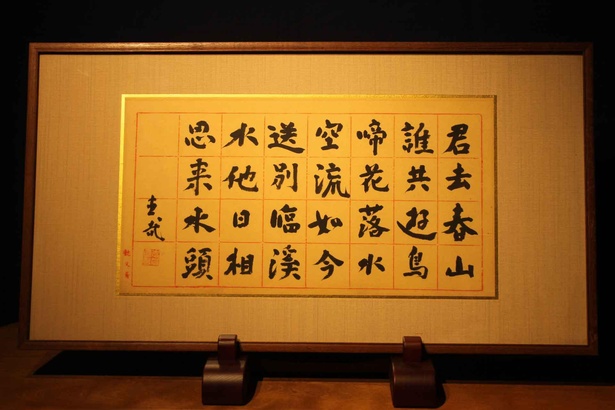 君去春山
誰共遊鳥
啼花落水
空流如今
送別臨溪
水他日相
思来水頭